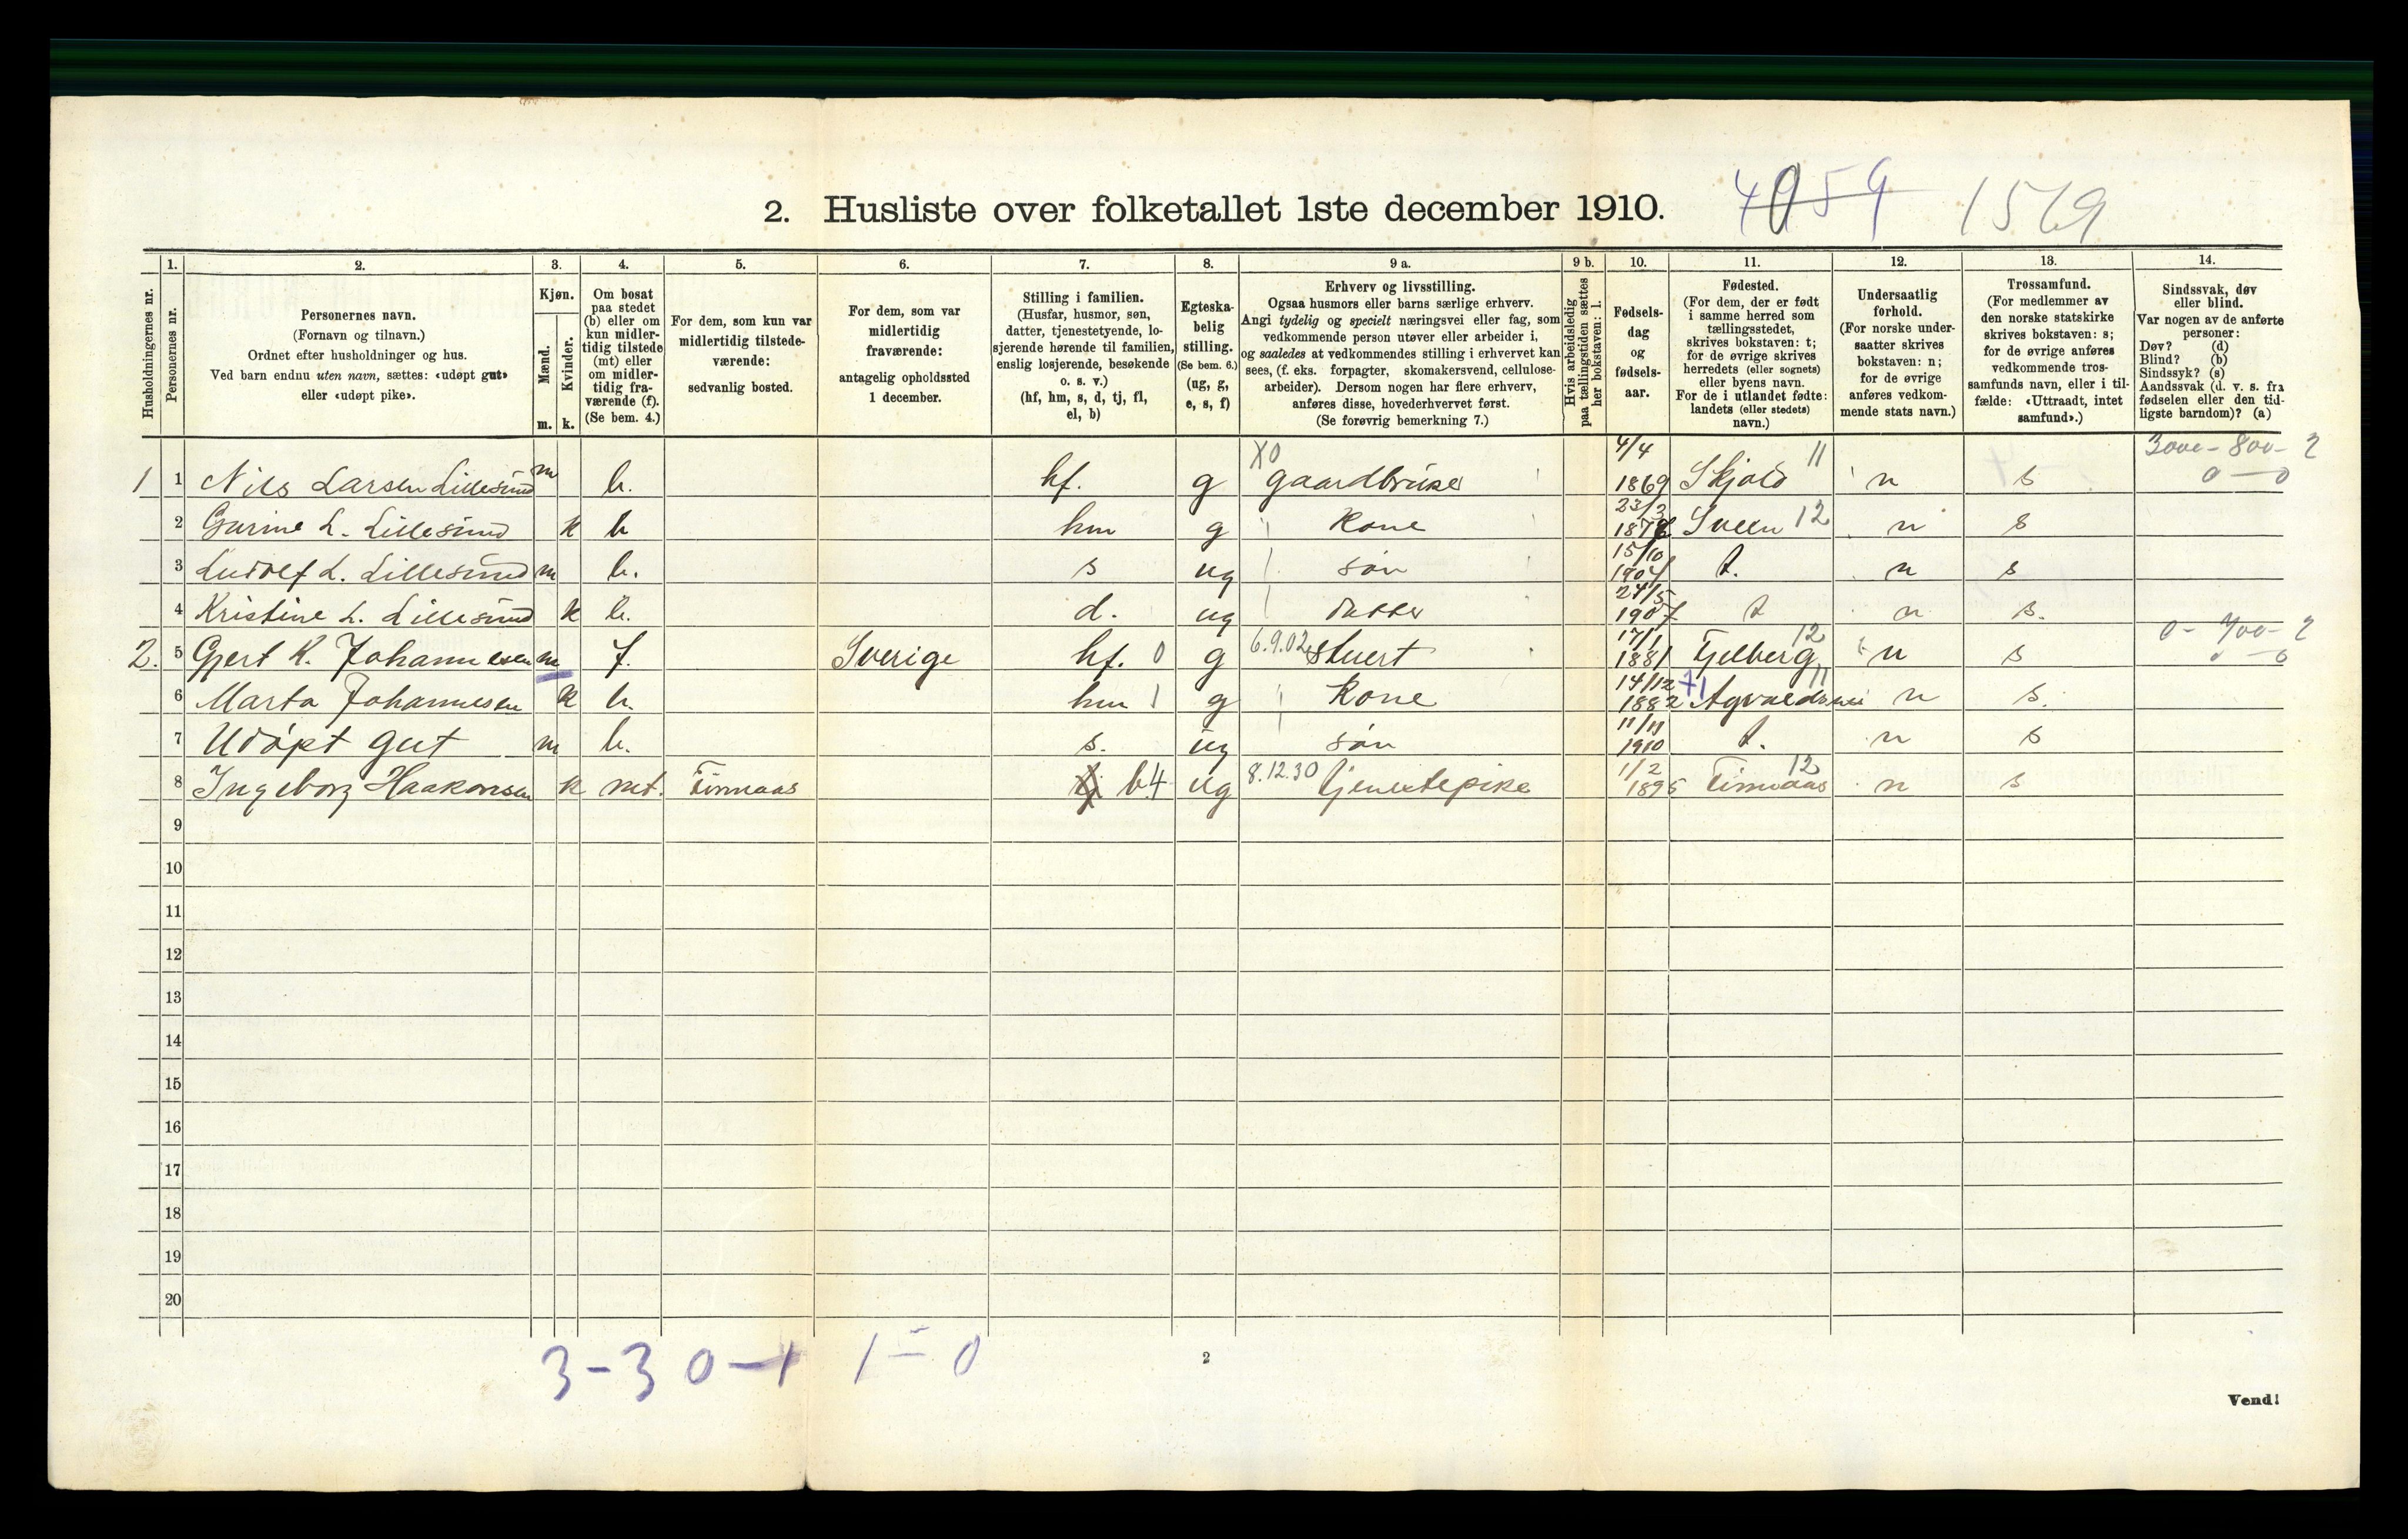 2. Husliste over folketallet 1ste december 1910. 4059 1569
1. 2. 3. 4. 5. 6. 7. 8. 9 a. 9 b. 10. 11. 12. 13. 14.
Husholdningernes nr.
Personernes nr.
Personernes navn.
(Fornavn og tilnavn.)
Ordnet efter husholdninger og hus.
Ved barn endnu uten navn, sættes: «udøpt gut»
eller «udøpt pike».
Kjøn.
Mænd.
Kvinder.
m. k.
Om bosat
paa stedet
(b) eller om
kun midler-
tidig tilstede
(mt) eller
om midler-
tidig fra-
værende (f).
(Se bem. 4.)
For dem, som kun var
midlertidig tilstede-
værende:
sedvanlig bosted.
For dem, som var
midlertidig
fraværende:
antagelig opholdssted
1 december.
Stilling i familien.
(Husfar, husmor, søn,
datter, tjenestetyende, lo-
sjerende hørende til familien,
enslig losjerende, besøkende
o. s. v.)
(hf, hm, s, d, tj, fl,
el, b)
Egteska-
belig
stilling.
(Se bem. 6.)
(ug, g,
e, s, f)
Erhverv og livsstilling.
Ogsaa husmors eller barns særlige erhverv.
Angi tydelig og specielt næringsvei eller fag, som
vedkommende person utøver eller arbeider i,
og saaledes at vedkommendes stilling i erhvervet kan
sees, (f. eks. forpagter, skomakersvend, cellulose-
arbeider). Dersom nogen har flere erhverv,
anføres disse, hovederhvervet først.
(Se forøvrig bemerkning 7.)
Hvis arbeidsledig
paa tællingstiden sættes
her bokstaven: l.
Fødsels-
dag
og
fødsels-
aar.
Fødested.
(For dem, der er født
i samme herred som
tællingsstedet,
skrives bokstaven: t;
for de øvrige skrives
herredets (eller sognets)
eller byens navn.
For de i utlandet fødte:
landets (eller stedets)
navn.)
Undersaatlig
forhold.
(For norske under-
saatter skrives
bokstaven: n;
for de øvrige
anføres vedkom-
mende stats navn.)
Trossamfund.
(For medlemmer av
den norske statskirke
skrives bokstaven: s;
for de øvrige anføres
vedkommende tros-
samfunds navn, eller i til-
fælde: «Uttraadt, intet
samfund».)
Sindssvak, døv
eller blind.
Var nogen av de anførte
personer:
Døv? (d)
Blind? (b)
Sindssyk? (s)
Aandssvak (d. v. s. fra
fødselen eller den tid-
ligste barndom)? (a)
X0 4/4 11 3000-800-2
1 1 Nils Larsen Lillesund m b. hf. g gaardbruker 1869 Skjold n s 0-0
23/3
2 Gurine L. Lillesund k b hm g Kone 1878 Sveen 12 n s
15/10
3 Ludolf L. Lillesund m b. s ug søn 1904 t. n s
24/5
4 Kristine L. Lillesund k b. d. ug datter 1907 t n s.
17/1 12 0-700-2
2. 5 Gjert K. Johannesen m f. Sverige hf. 0 g 6.9.02 stuert 1881 Fjelberg n s 0-0
14/12 71 11
6 Marta Johannesen k b. hm 1 g Kone 1882 Agvaldsnes n s.
11/11
7 Udøpt gut m b. s. ug søn 1910 t. n s
1/2 12
8 Ingeborg Haakonsen k mt. Finnaas b4 ug 8.12.30 tjenestepike 1895 Finnaas n s
9
10
11
12
13
14
15
16
17
18
19
20
3-3 0-1 1-0
2
Vend!